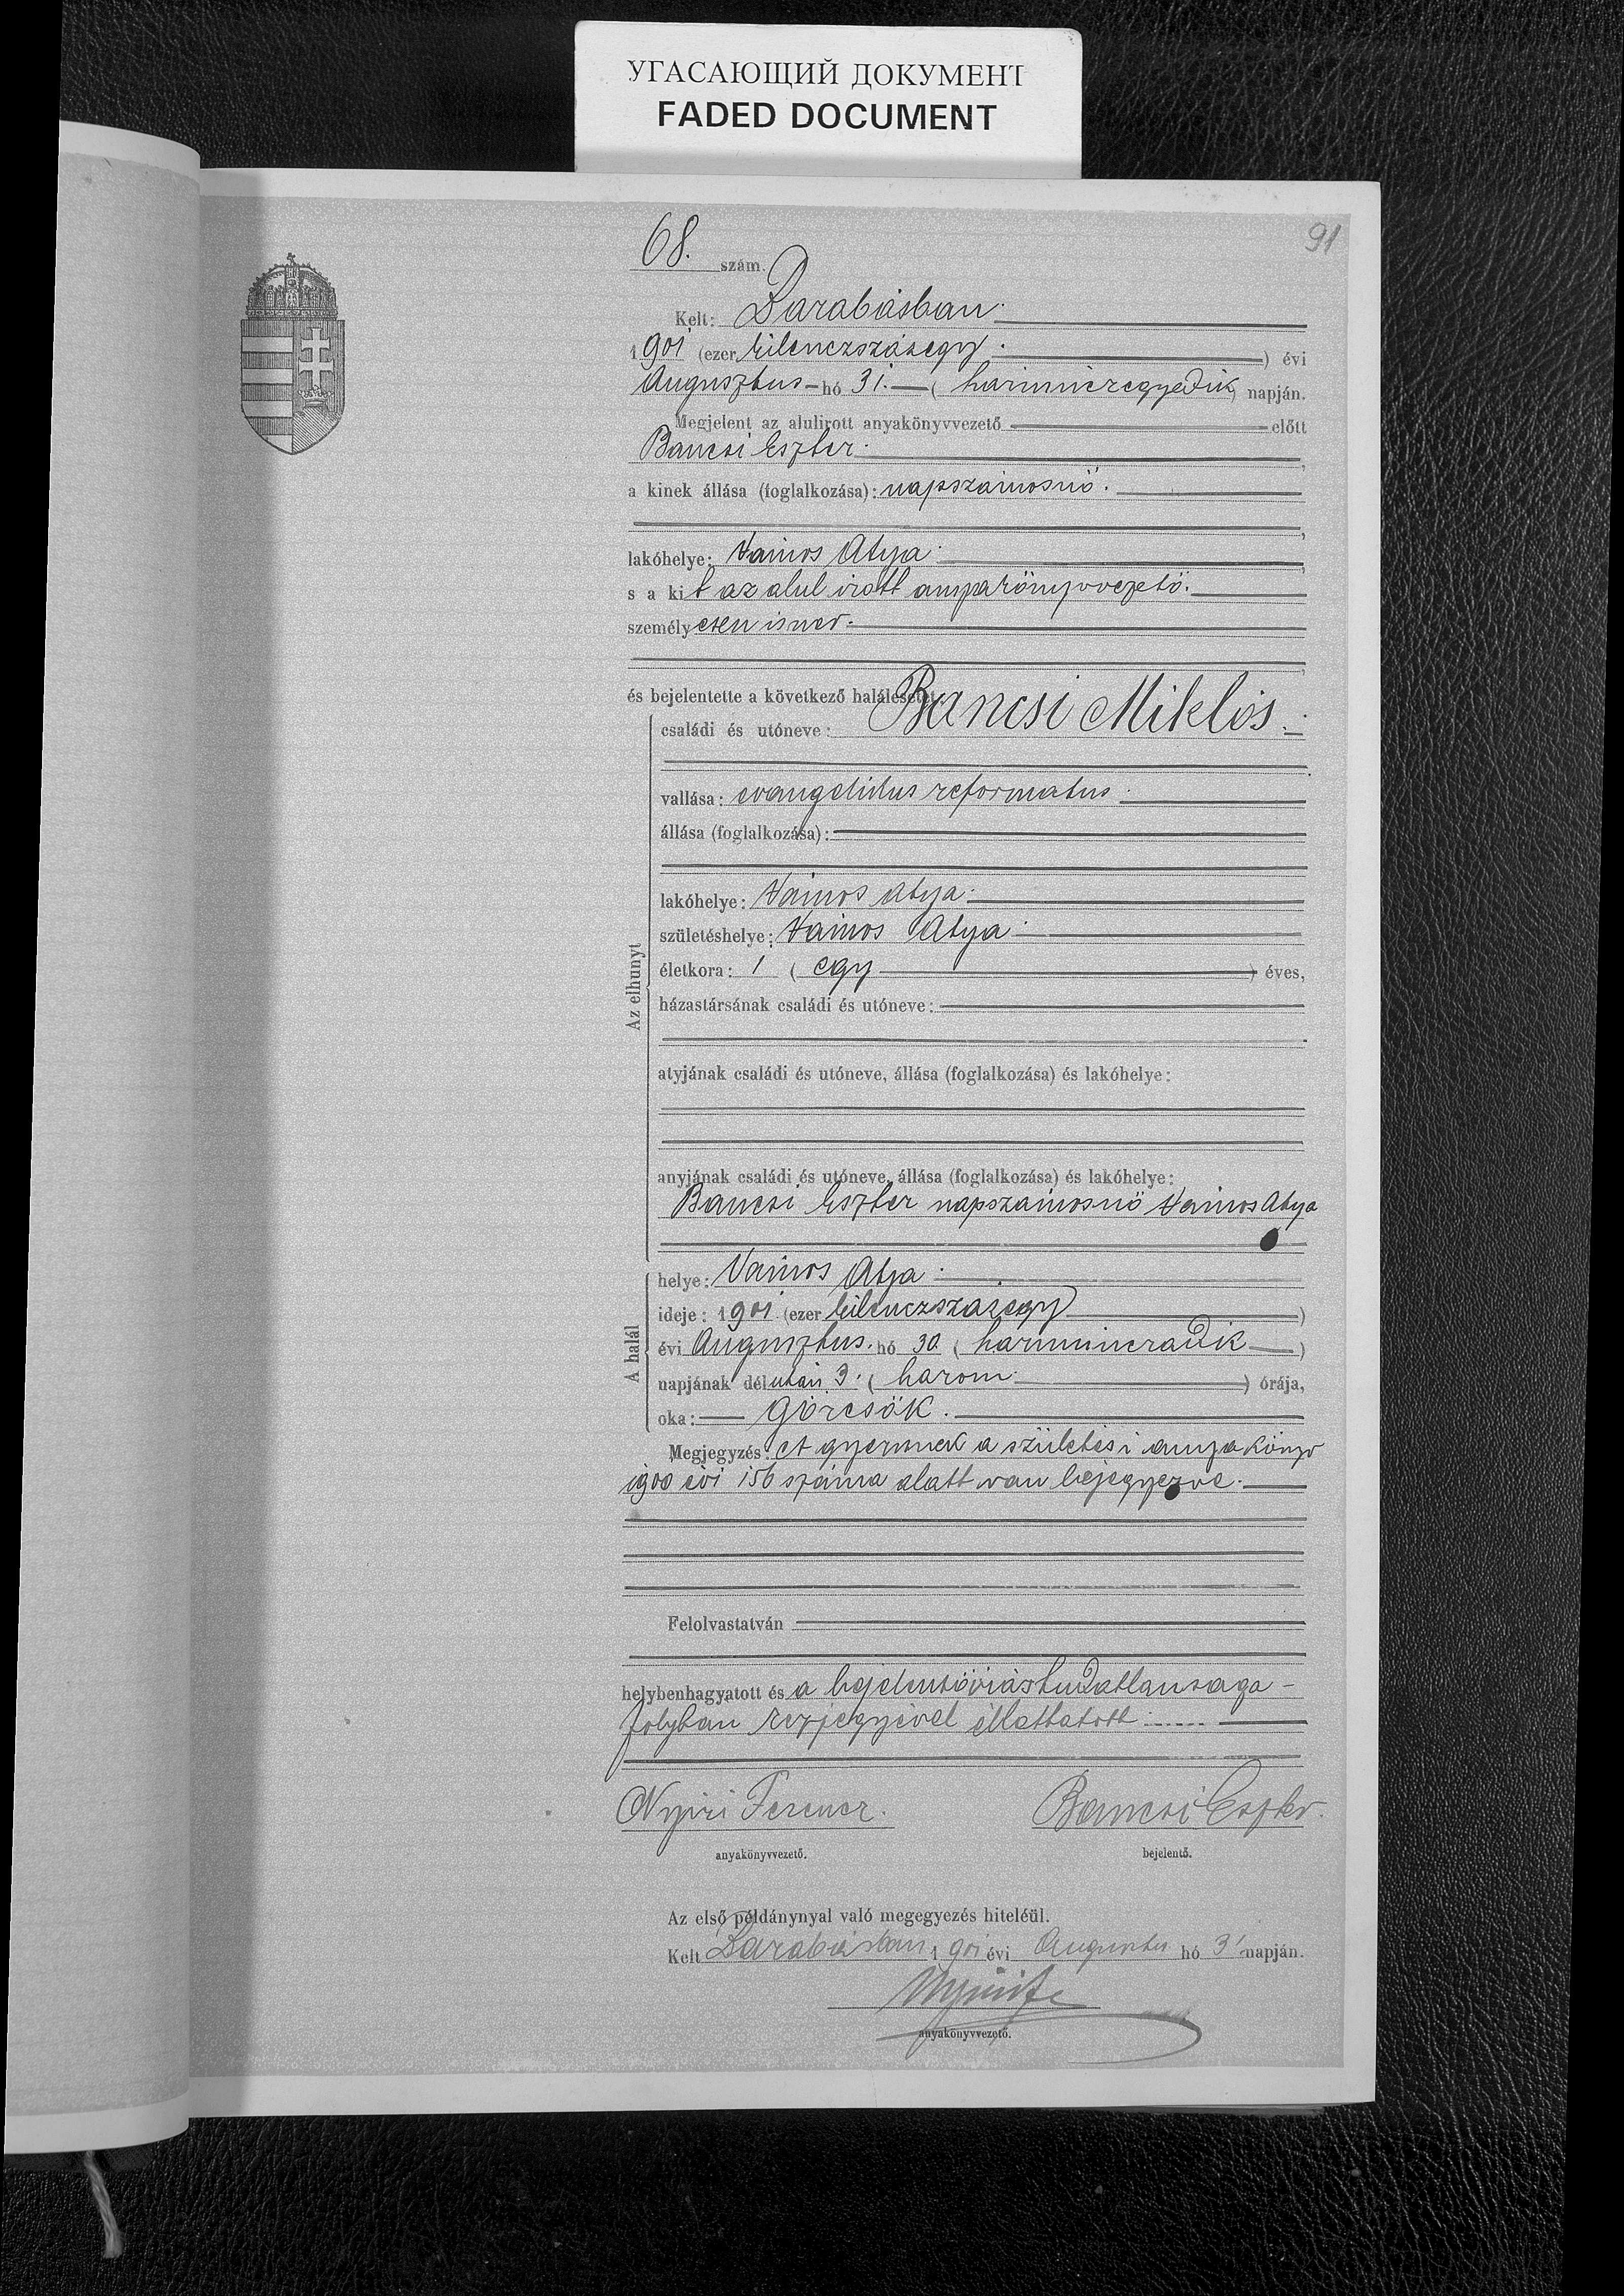 УГАСАЮЩИЙ ДОКУМЕНТ
FADED DOCUMENT
91
68. szám.
Kelt: Darabásban
1901 (ezer kilenczszázegy) évi
Augusztus hó 31. (harminczegyedik) napján.
Megjelent az alulirott anyakönyvvezető előtt
Bancsi Eszter
a kinek állása (foglalkozása): napszámosnő.
lakóhelye: Vámos Atya
s a kit az alul irott anyakönyvvezető.
személyesen ismer.
és bejelentette a következő halálesetet:
családi és utóneve: Bancsi Miklós.
vallása: evangelikus reformatus
állása (foglalkozása):
lakóhelye: Vámos atya
születéshelye: Vámos Atya
életkora: 1 (egy) éves,
házastársának családi és utóneve:
atyjának családi és utóneve, állása (foglalkozása) és lakóhelye:
anyjának családi és utóneve, állása (foglalkozása) és lakóhelye:
Bancsi Eszter napszámosnő Vámos Atya
Az elhunyt
helye: Vámos Atya
ideje: 1901 (ezer kilenczszázegy)
évi Augusztus hó 30 (harminczadik)
napjának délután 3. (harom) órája,
oka: Görcsök.
A halál
Megjegyzés: A gyermek a születési anyakönyv
1900 évi 156 száma alatt van bejegyezve.
Felolvastatván
helybenhagyatott és a bejelentő írástudatlansaga
folytán kézjegyével elláttatott
Nyiri Ferencz. Bancsi Eszter.
anyakönyvvezető. bejelentő.
Az első példánynyal való megegyezés hiteléül.
Kelt Darabásban 1901 évi Augusztus hó 31 napján.
Nyiri Fe
anyakönyvvezető.